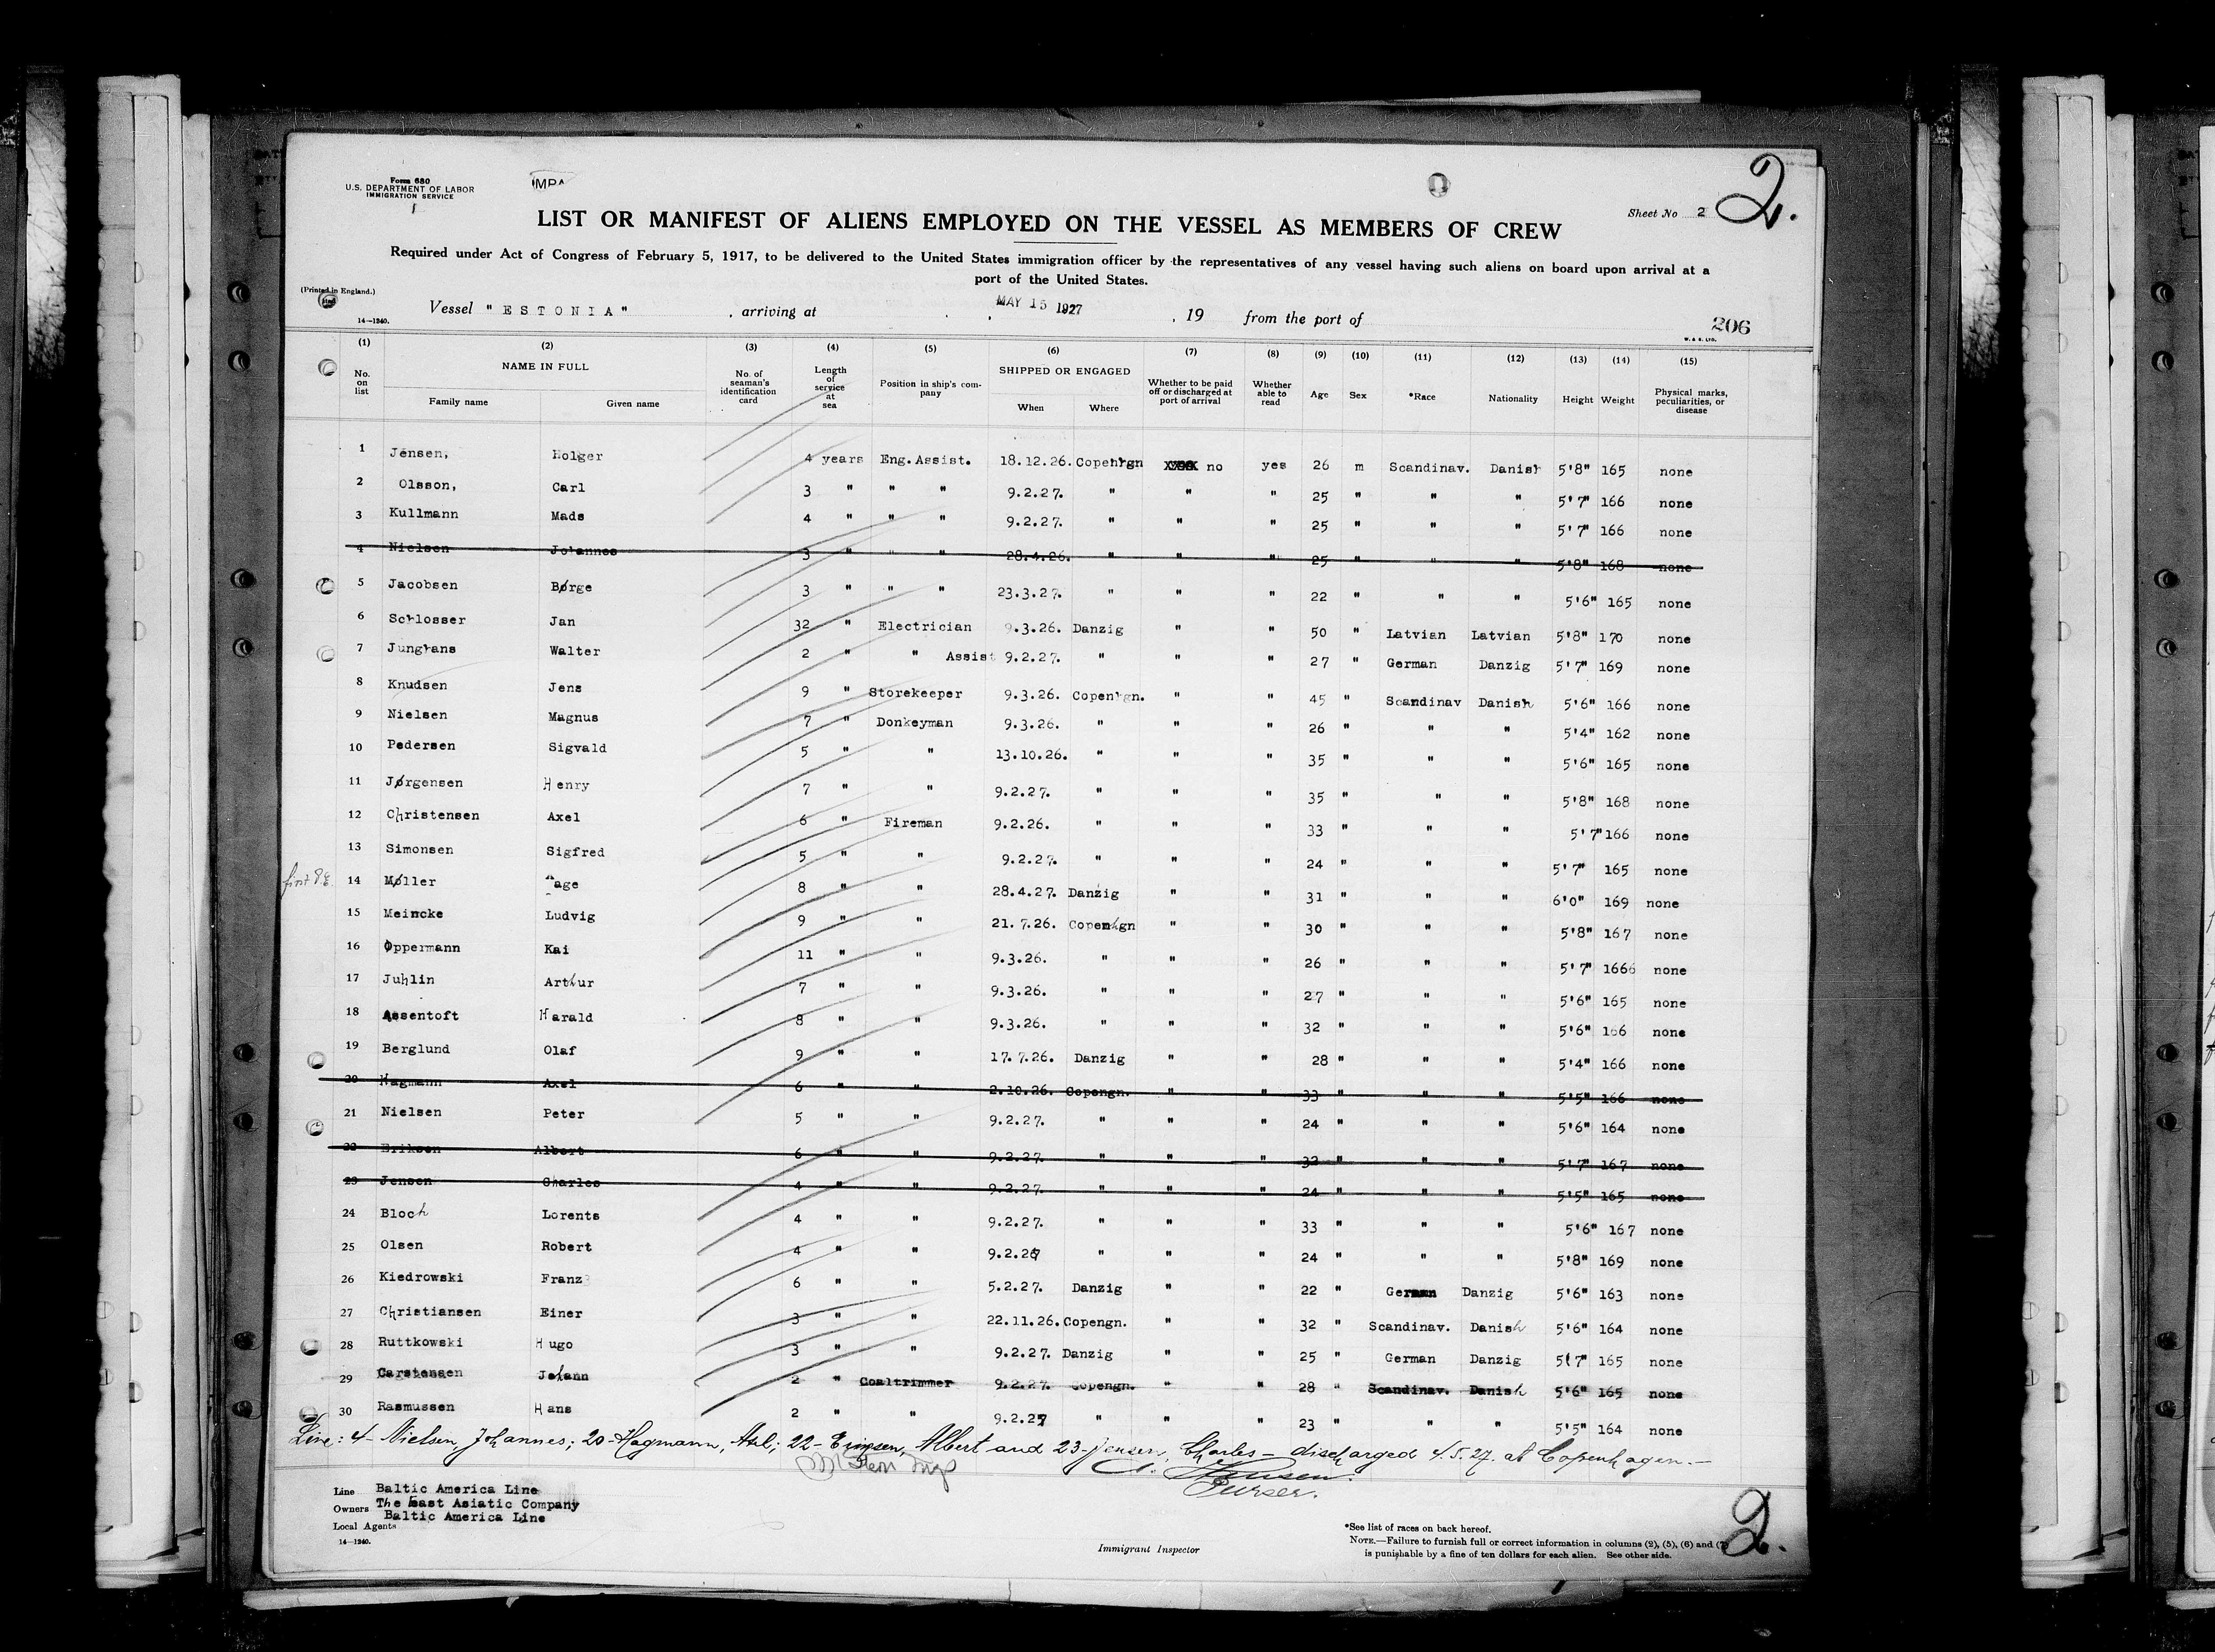 Form 680
U.S. DEPARTMENT OF LABOR
IMMIGRATION SERVICE
Sheet No 2
2.
LIST OR MANIFEST OF ALIENS EMPLOYED ON THE VESSEL AS MEMBERS OF CREW
Required under Act of Congress of February 5, 1917, to be delivered to the United States immigration officer by the representatives of any vessel having such aliens on board upon arrival at a
port of the United States.
(Printed in England.)
Vessel "ESTONIA", arriving at MAY 15 1927, 19 from the port of
14—1240.
206
W. & S. LTD.
(1) (2) (3) (4) (5) (6) (7) (8) (9) (10) (11) (12) (13) (14) (15)
No. on list NAME IN FULL Family name Given name No. of seaman's identification card Length of service at sea Position in ship's company SHIPPED OR ENGAGED When Where Whether to be paid off or discharged at port of arrival Whether able to read Age Sex *Race Nationality Height Weight Physical marks, peculiarities, or disease
1 Jensen, Holger 4 years Eng.Assist. 18.12.26. Copenhgn no yes 26 m Scandinav. Danish 5'8" 165 none
2 Olsson, Carl 3 " " " 9.2.27. " " " 25 " " " 5'7" 166 none
3 Kullmann Mads 4 " " " 9.2.27. " " " 25 " " " 5'7" 166 none
4 Nielsen Johannes 3 " " " 28.4.26. " " " 25 " " " 5'8" 168 none
5 Jacobsen Børge 3 " " " 23.3.27. " " " 22 " " " 5'6" 165 none
6 Schlosser Jan 32 " Electrician 9.3.26. Danzig " " 50 " Latvian Latvian 5'8" 170 none
7 Junghans Walter 2 " " Assist 9.2.27. " " " 27 " German Danzig 5'7" 169 none
8 Knudsen Jens 9 " Storekeeper 9.3.26. Copenhgn. " " 45 " Scandinav Danish 5'6" 166 none
9 Nielsen Magnus 7 " Donkeyman 9.3.26. " " " 26 " " " 5'4" 162 none
10 Pedersen Sigvald 5 " " 13.10.26. " " " 35 " " " 5'6" 165 none
11 Jørgensen Henry 7 " " 9.2.27. " " " 35 " " " 5'8" 168 none
12 Christensen Axel 6 " Fireman 9.2.26. " " " 33 " " " 5'7" 166 none
13 Simonsen Sigfred 5 " " 9.2.27. " " " 24 " " " 5'7" 165 none
first 14 Møller Aage 8 " " 28.4.27. Danzig " " 31 " " " 6'0" 169 none
15 Meincke Ludvig 9 " " 21.7.26. Copenhgn " " 30 " " " 5'8" 167 none
16 Oppermann Kai 11 " " 9.3.26. " " " 26 " " " 5'7" 1666 none
17 Juhlin Arthur 7 " " 9.3.26. " " " 27 " " " 5'6" 165 none
18 Assentoft Harald 8 " " 9.3.26. " " " 32 " " " 5'6" 166 none
19 Berglund Olaf 9 " " 17.7.26. Danzig " " 28 " " " 5'4" 166 none
20 Hagmann Axel 6 " " 2.10.26. Copengn. " " 33 " " " 5'5" 166 none
21 Nielsen Peter 5 " " 9.2.27. " " " 24 " " " 5'6" 164 none
22 Eriksen Albert 6 " " 9.2.27. " " " 32 " " " 5'7" 167 none
23 Jensen Charles 4 " " 9.2.27. " " " 24 " " " 5'5" 165 none
24 Bloch Lorents 4 " " 9.2.27. " " " 33 " " " 5'6" 167 none
25 Olsen Robert 4 " " 9.2.27 " " " 24 " " " 5'8" 169 none
26 Kiedrowski Franz 6 " " 5.2.27. Danzig " " 22 " German Danzig 5'6" 163 none
27 Christiansen Einer 3 " " 22.11.26. Copengn. " " 32 " Scandinav. Danish 5'6" 164 none
28 Ruttkowski Hugo 3 " " 9.2.27. Danzig " " 25 " German Danzig 5'7" 165 none
29 Carstensen Johann 2 " Coaltrimmer 9.2.27. Copengn. " " 28 " Scandinav. Danish 5'6" 165 none
30 Rasmussen Hans 2 " " 9.2.27 " " " 23 " " " 5'5" 164 none
Line: 4- Nielsen, Johannes; 20- Hagmann, Axl; 22- Albert and 23- Jensen, Charles – discharged 4.5.27. at Copenhagen.–
Purser.
Line Baltic America Line
Owners The East Asiatic Company
Local Agents Baltic America Line
14—1240.
Immigrant Inspector
*See list of races on back hereof.
NOTE.—Failure to furnish full or correct information in columns (2), (5), (6) and (7)
is punishable by a fine of ten dollars for each alien. See other side.
2.